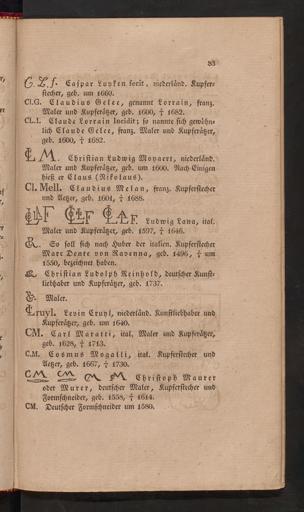 33
C. L. f. Caspar Luyken fecit, niederländ. Kupfer-
stecher, geb. um 1660.
Cl.G. Claudius Gelee, genannt Lorrain, franz.
Maler und Kupferätzer, geb. 1600, † 1682.
CL.I. Claude Lorrain Incidit; so nannte sich gewöhn-
lich Claude Gelee, franz. Maler und Kupferätzer,
geb. 1600, † 1682.
CL M. Christian Ludwig Moyaert, niederländ.
Maler und Kupferätzer, geb. um 1600. Nach Einigen
hieß er Claus (Nikolaus).
Cl. Mell. Claudius Melan, franz. Kupferstecher
und Aetzer, geb. 1601, † 1688.
Ludwig Lana, ital.
Maler und Kupferätzer, geb. 1597, † 1646.
So soll sich nach Huber der italien. Kupferstecher
Marc Dente von Ravenna, geb. 1496, † um
1550, bezeichnet haben.
Christian Ludolph Reinhold, deutscher Kunst-
liebhaber und Kupferätzer, geb. 1737.
Maler.
Cruyl. Levin Cruyl, niederländ. Kunstliebhaber und
Kupferätzer, geb. um 1640.
CM. Carl Maratti, ital. Maler und Kupferätzer,
geb. 1628, † 1713.
C.M. Cosmus Mogalli, ital. Kupferstecher und
Aetzer, geb. 1667, † 1730.
CM CM CM M Christoph Maurer
oder Murer, deutscher Maler, Kupferstecher und
Formschneider, geb. 1558, † 1614.
CM. Deutscher Formschneider um 1580.